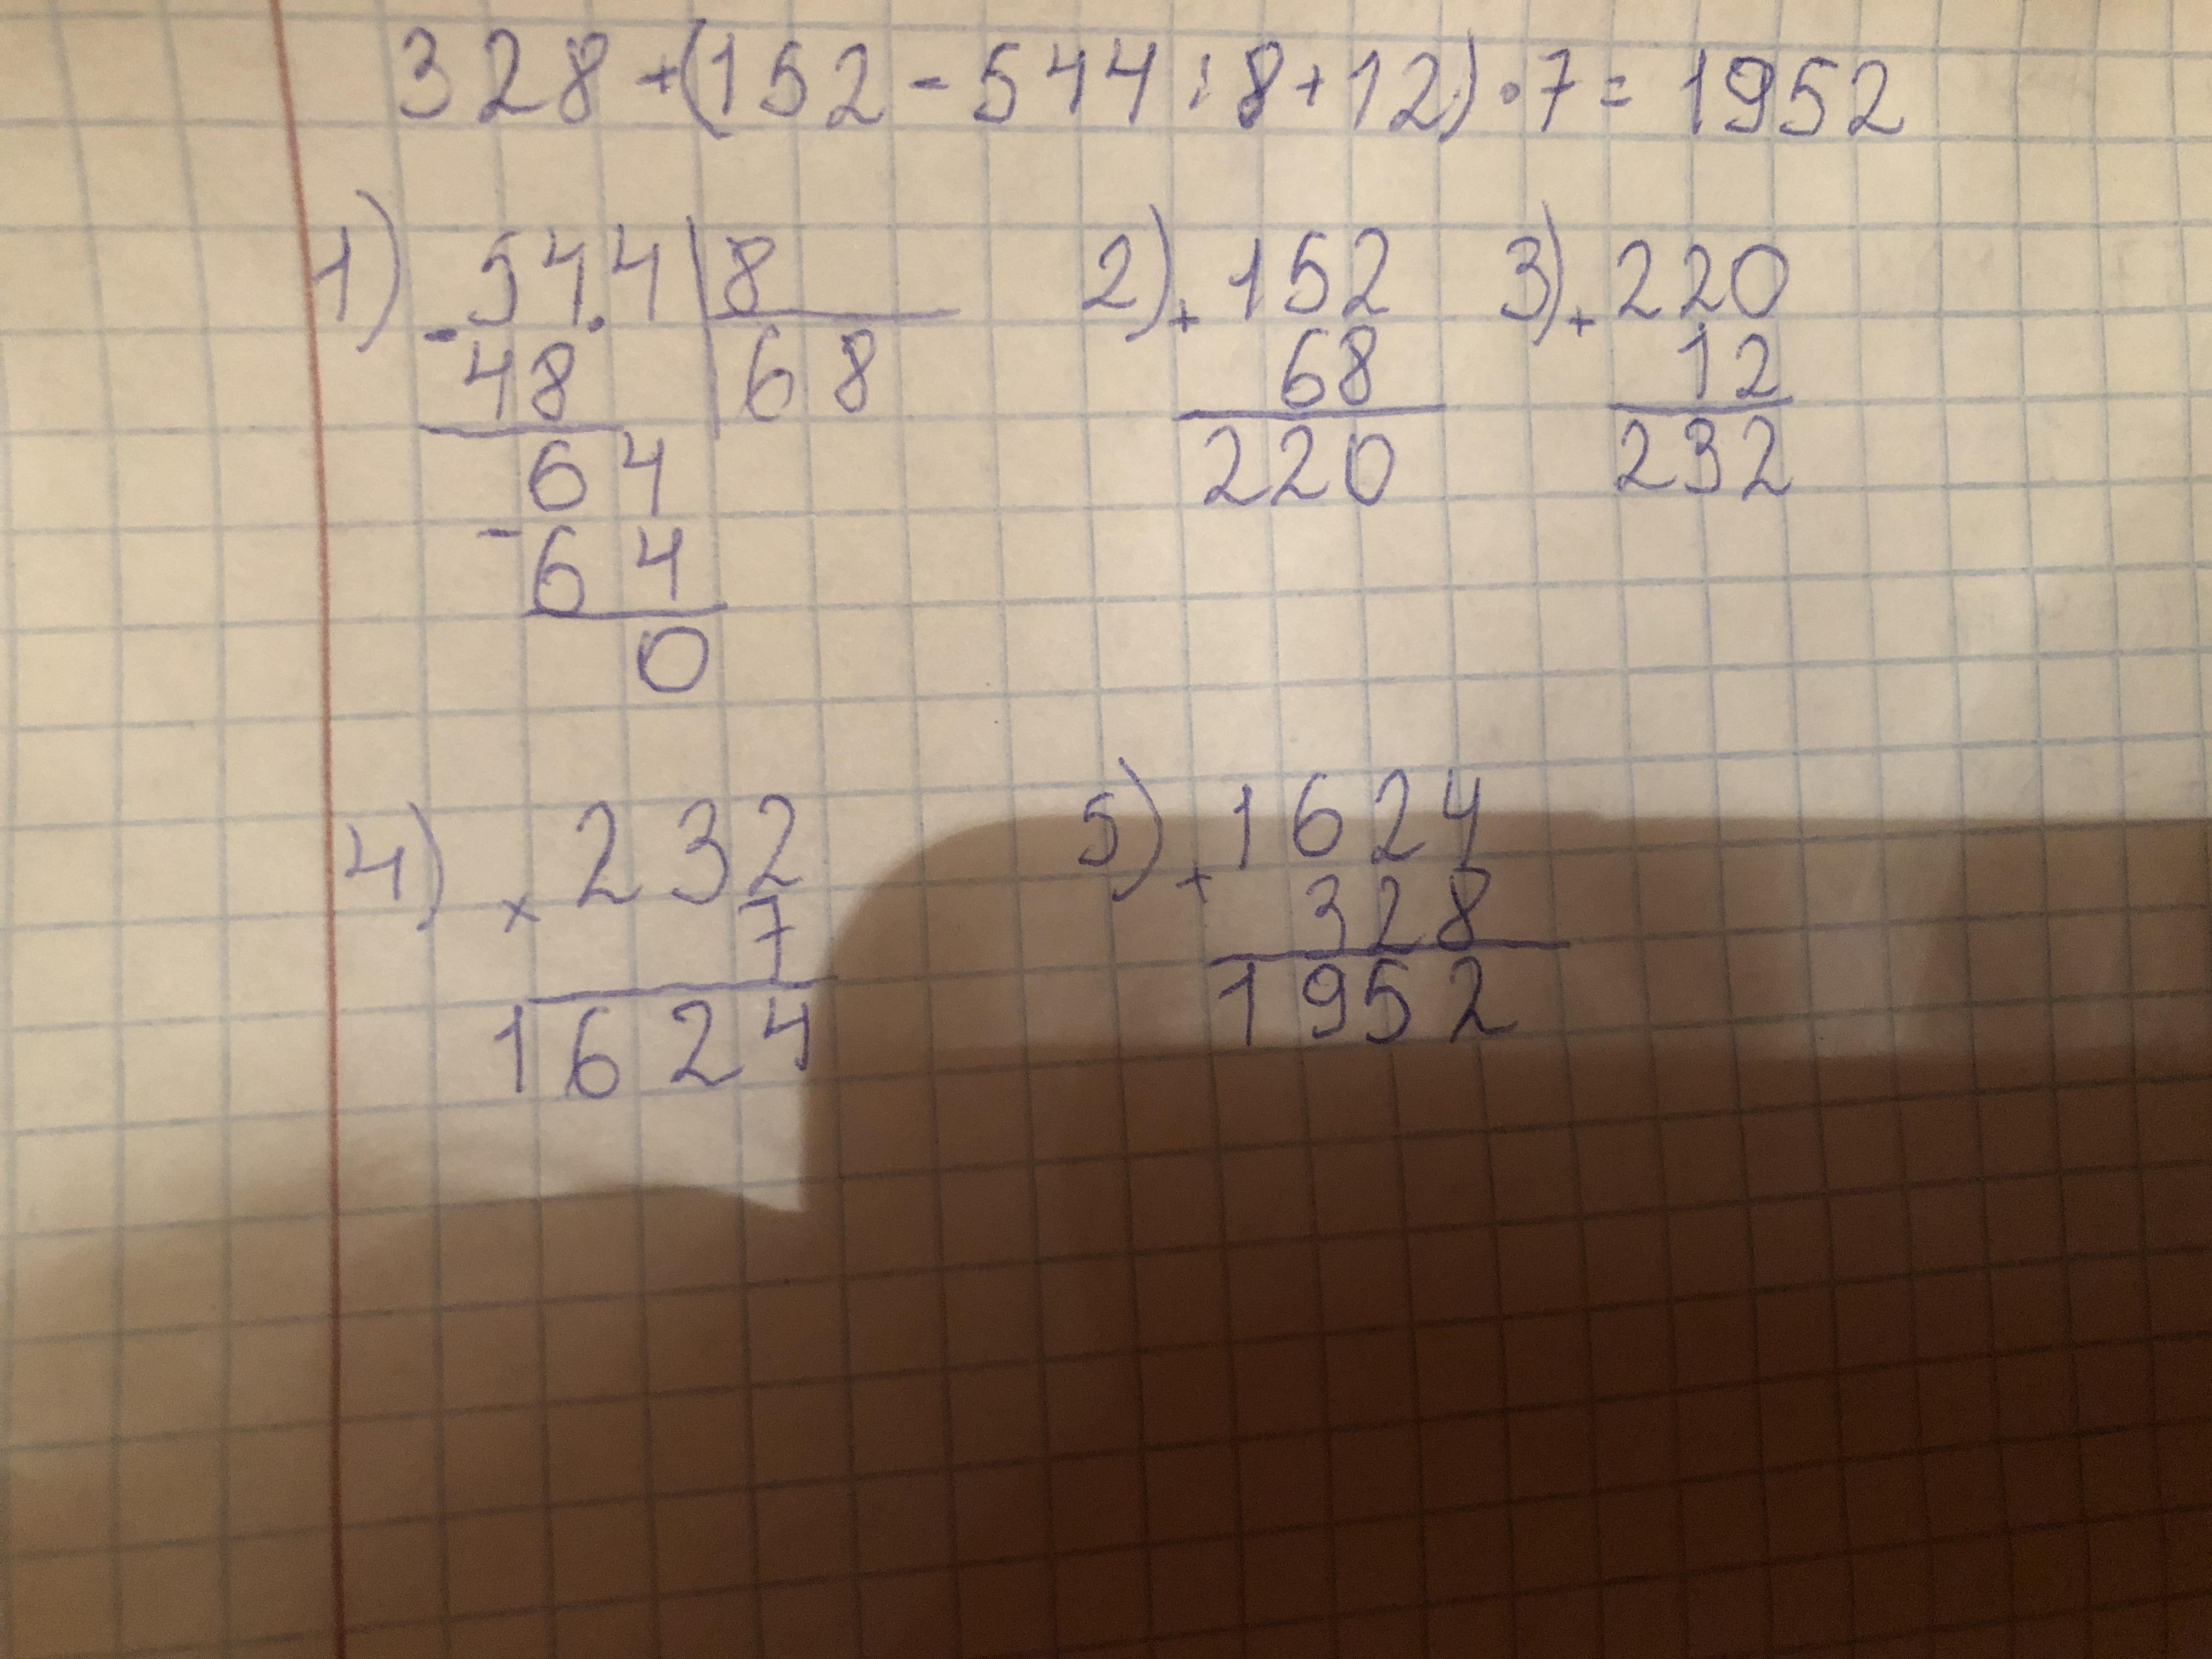 328+(152-544:8+12)·7=1952
1) -544|8 2) +152 3) +220
48 |68 68 12
64 220 232
-64
0
4) ×232 5) +1624
7 328
1624 1952